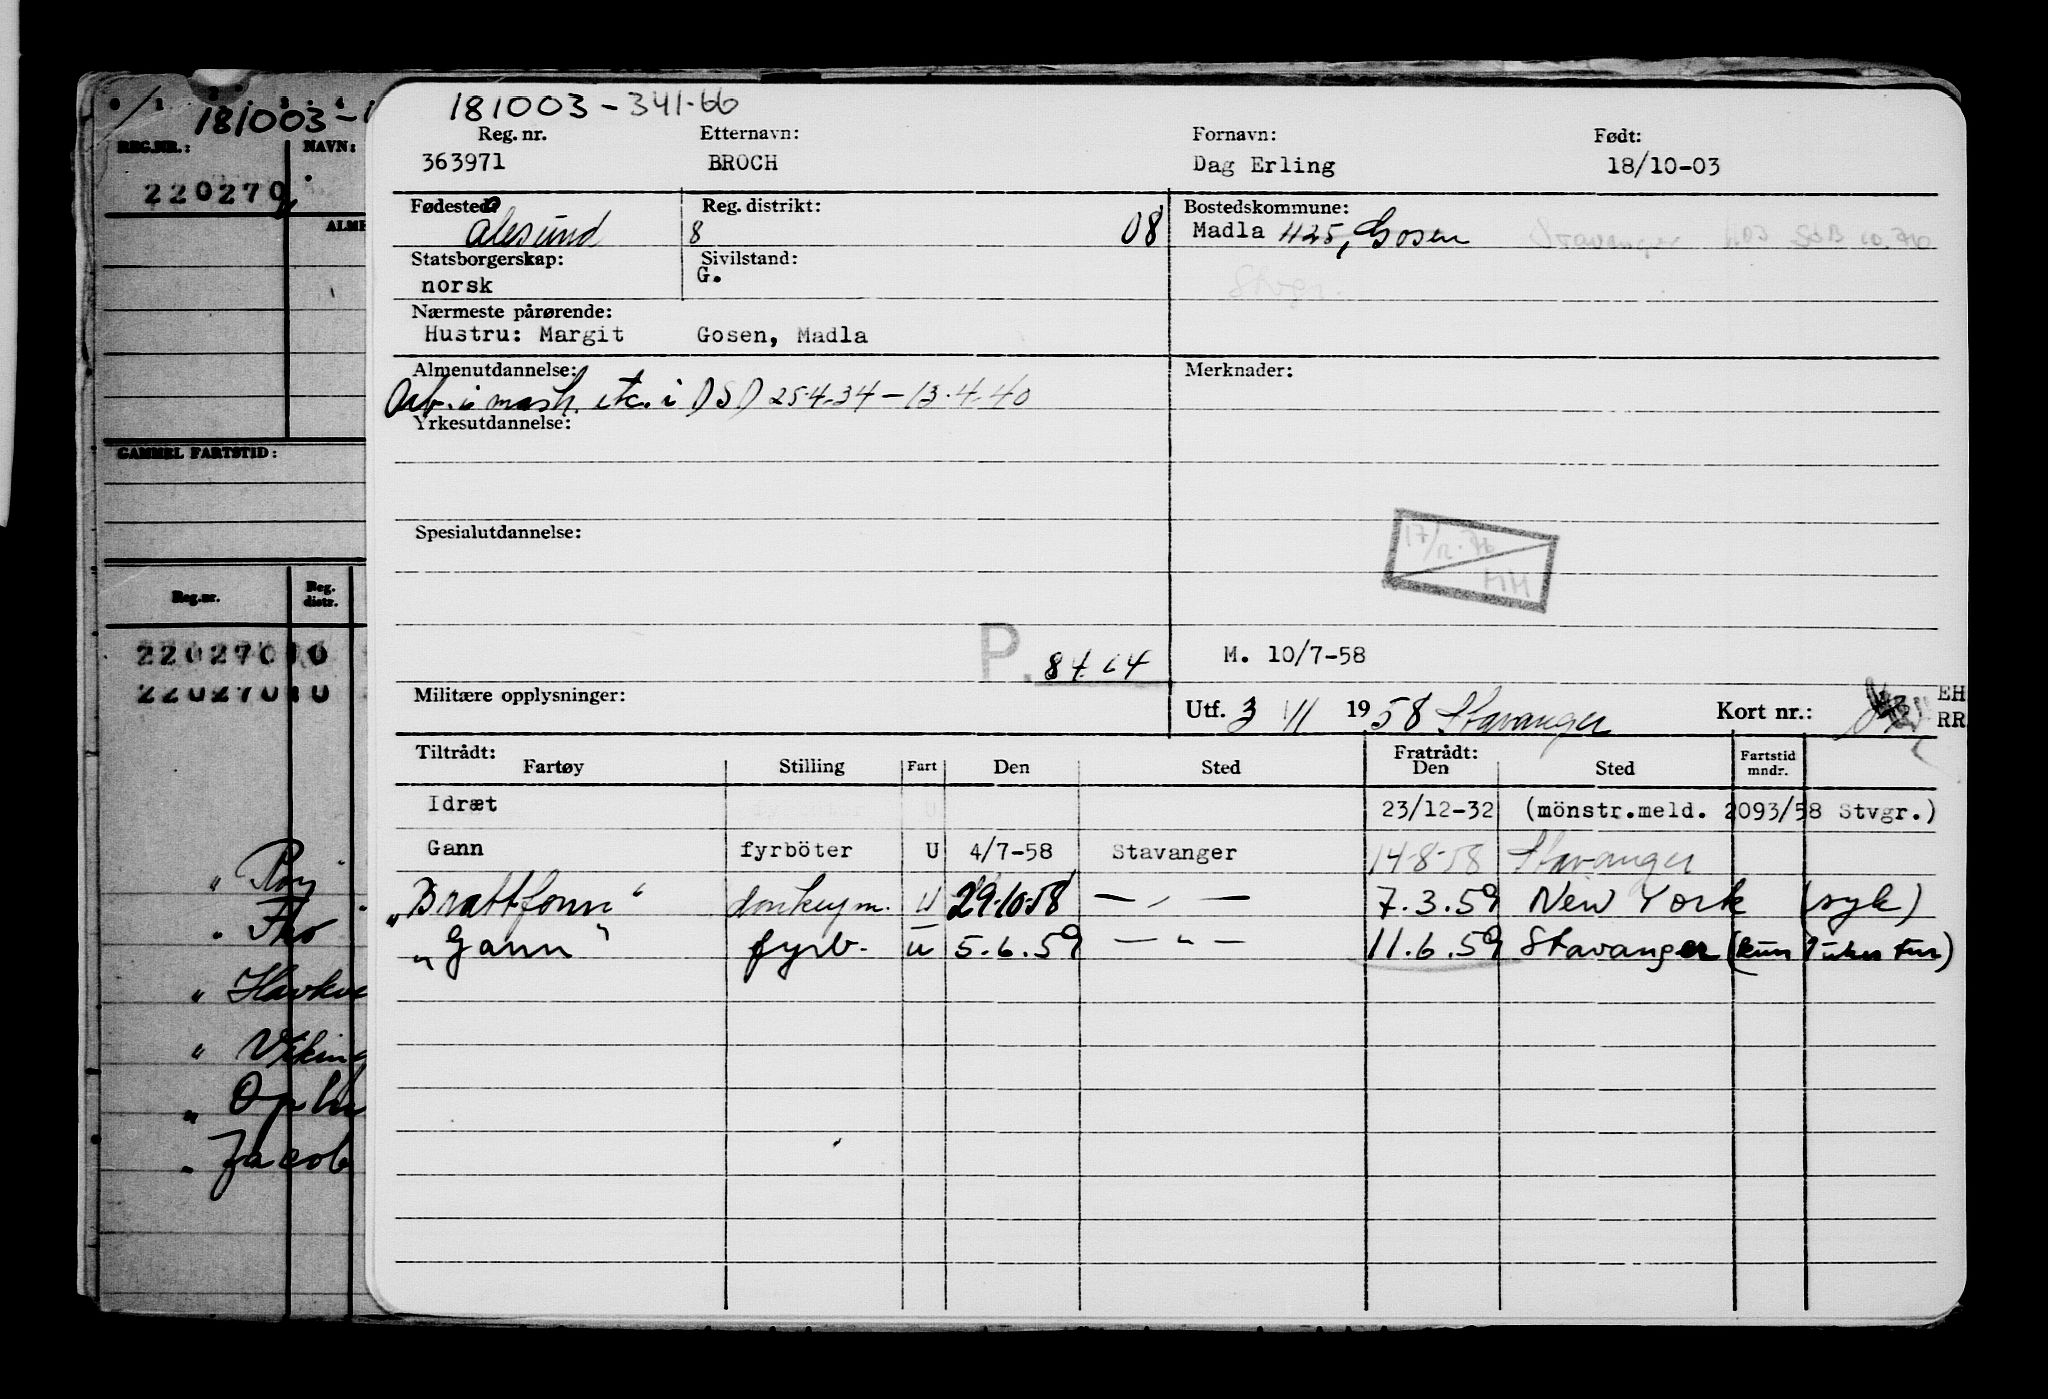 181003-341.66
Reg. nr. Etternavn: Fornavn: Født:
363971 BROCH Dag Erling 18/10-03
Fødested: Reg. distrikt: Bostedskommune:
Ålesund 8 08 Madla 425, Gosen Stavanger
Statsborgerskap: Sivilstand:
norsk G. Stvgr.
Nærmeste pårørende:
Hustru: Margit Gosen, Madla
Almenutdannelse: Merknader:
Arb. i mash. etc. i DSD 25.4.34 - 13.4.40
Yrkesutdannelse:
Spesialutdannelse:
17/12.76
HH
P. M. 10/7-58
Militære opplysninger: Utf. 3 VII 1958 Stavanger Kort nr.: EH
RR
Tiltrådt: Fratrådt: Fartstid
Fartøy Stilling Fart Den Sted Den Sted mndr.
Idræt 23/12-32 (mönstr.meld. 2093/58 Stvgr.)
Gann fyrböter U 4/7-58 Stavanger 14-8-58 Stavanger
"Brattfonn" donkeym. U 29.10.58 — " — 7.3.59 New York (syk)
"Gann" fyrb. u 5.6.59 — " — 11.6.59 Stavanger (kun 1 ukes tur)
0 1 2 3 4
181003-1
REG.NR.: NAVN:
220270
ALME
GAMMEL FARTSTID:
Reg.nr. Reg. distr.
22027010
22027010
" Roy
" Tho
" Havkv
" Viking
" Oplu
" Jacob